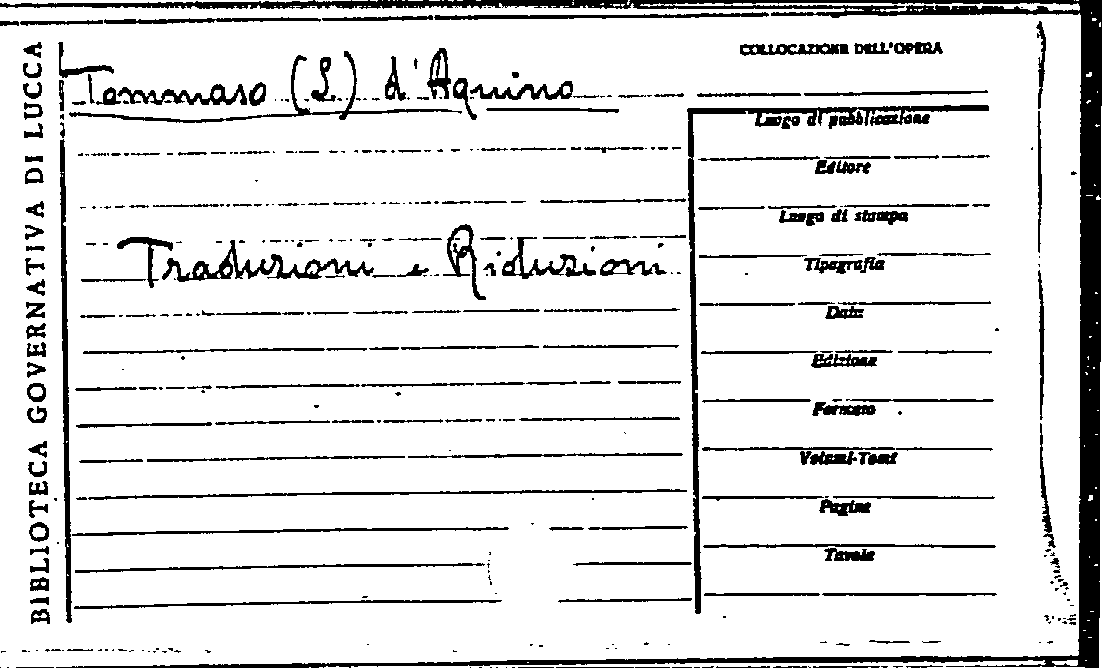 BIBLIOTECA GOVERNATIVA DI LUCCA
Tommaso (S.) d'Aquino
Traduzioni e Riduzioni
COLLOCAZIONE DELL'OPERA
Luogo di pubblicazione
Editore
Luogo di stampa
Tipografia
Data
Edizione
Formato
Volumi-Tomi
Pagine
Tavole